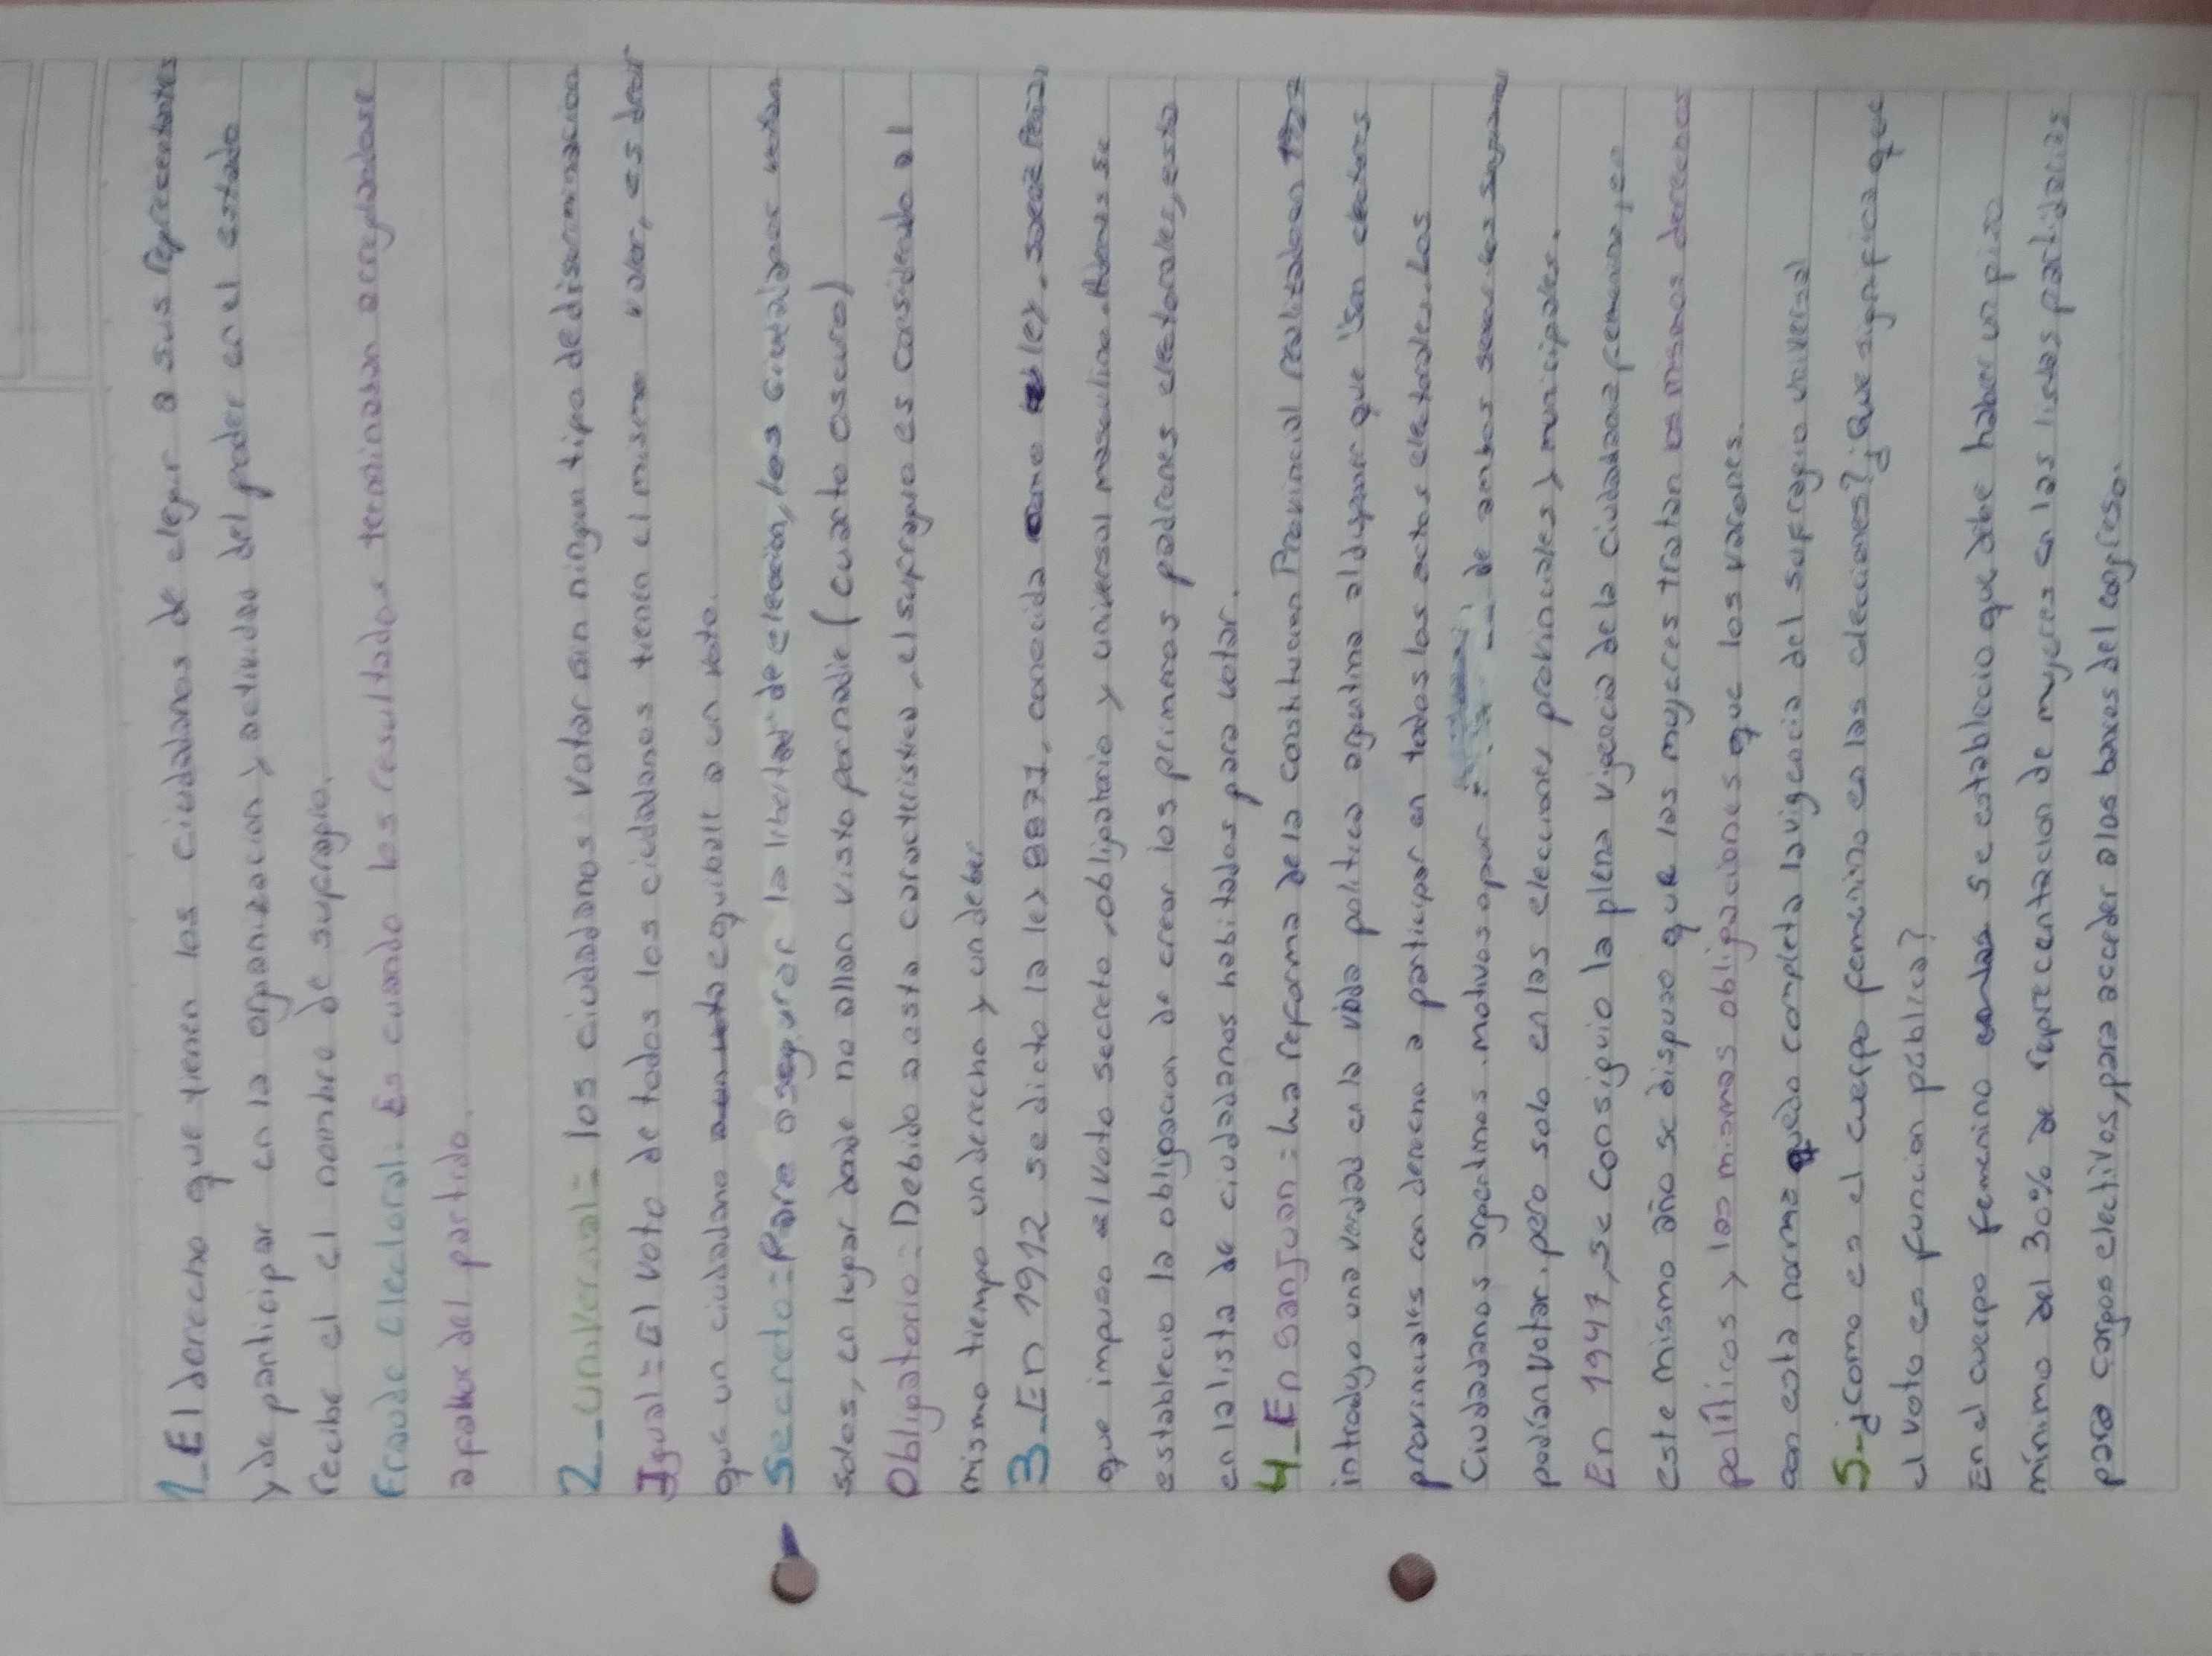 1_El derecho que tienen los ciudadanos de elegir a sus reprecentantes
y de panticipar en la organizacion y actividad del poder en el estado
recibe el el nombre de sufragio.
Fraude electoral: Es cuando los resultados terminan arreglandose
a fabor del partido.
2_Universal= los ciudadanos votar sin ningun tipo de discriminacion
Igual= El voto de todos los ciudadanos tienen el mismo valor, es decir
que un ciudadano equibale a un voto.
Secreto= Para asegurar la libertad de eleccion, los ciudadanos votan
solos, en lugar donde no allan visto por nadie (cuarto oscuro)
Obligatorio= Debido a asta caracteristica, el sufragio es considerado al
mismo tiempo un derecho y un deber
3_En 1912 se dicto la ley 8871, conocida como ley saenz Peña,
que impuso el voto secreto, obligatorio y universal masculino. Ademas se
establecio la obligacion de crear los primeros padrones electorales, esto
en la lista de ciudadanos habitados para votar.
4_En San Juan= La reforma de la constitucion Provincial realizada en
introdujo una verdad en la vida politica argentina al disponer que "son electores
provinciales con derecho a participar en todos los actos electorales. Los
Ciudadanos argentinos. motivos opor de ambos sexos
podían votar, pero solo en las elecciones provinciales y municipales.
En 1947, se consiguio la plena vigencia de la ciudadana femenina, en
este mismo año se dispuso que las mujeres tratan os mismos derechos
políticos y las mismas obligaciones que los varones.
con esta norma quedo completa la vigencia del sufragio universal
5-¿Como es el cuerpo femenino en las elecciones? ¿Que significa que
el voto es funcion pública?
En el cuerpo femenino se establecio que debe haber un piso
mínimo del 30% de reprecentacion de mujeres en las listas partidarias
para cargos electivos, para acceder a las bancas del congreso.